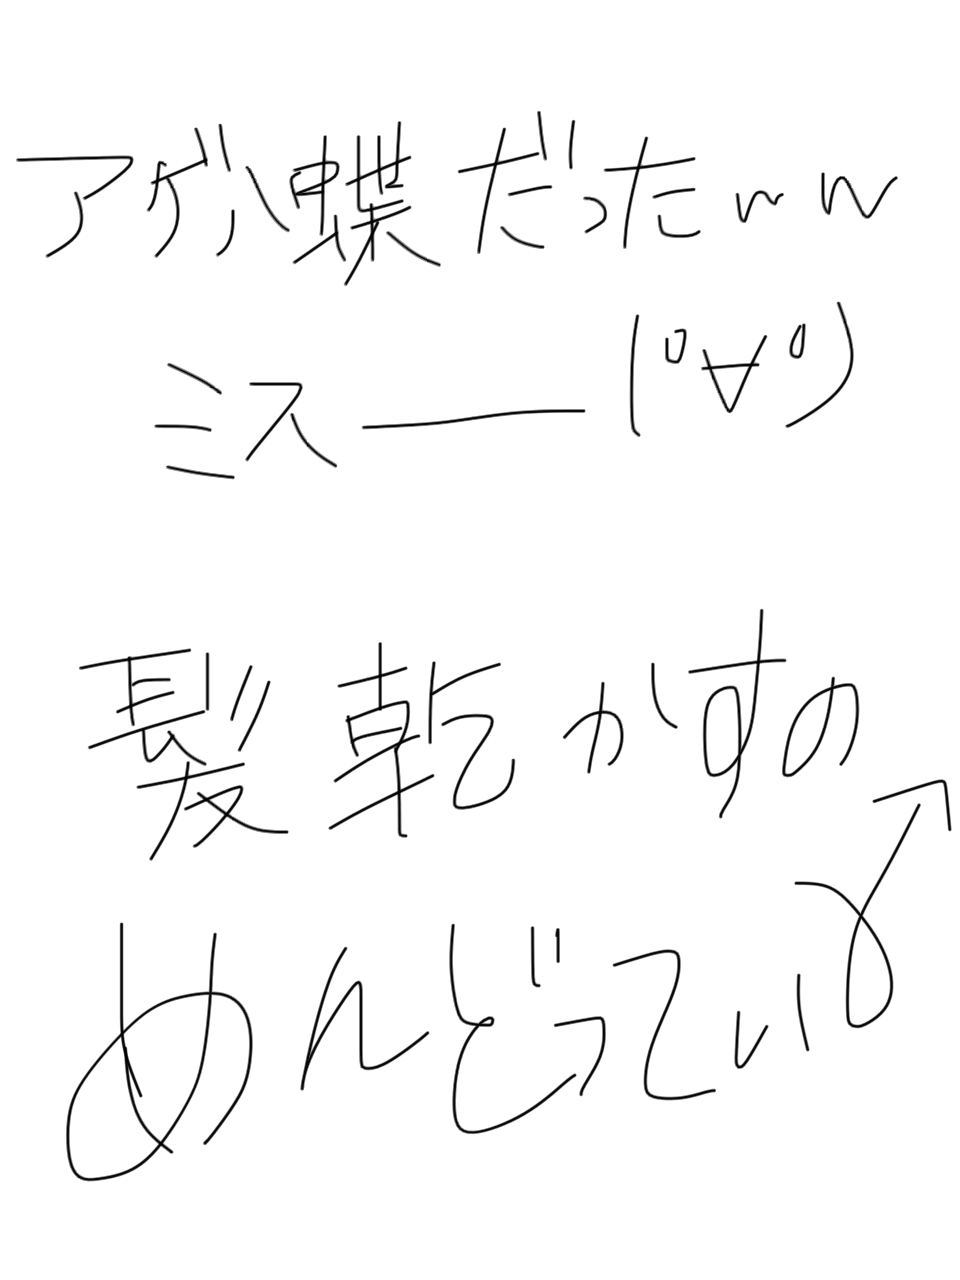 アゲハ蝶だったww
ミスー(°∀°)
髪乾かすの
めんどってぃ